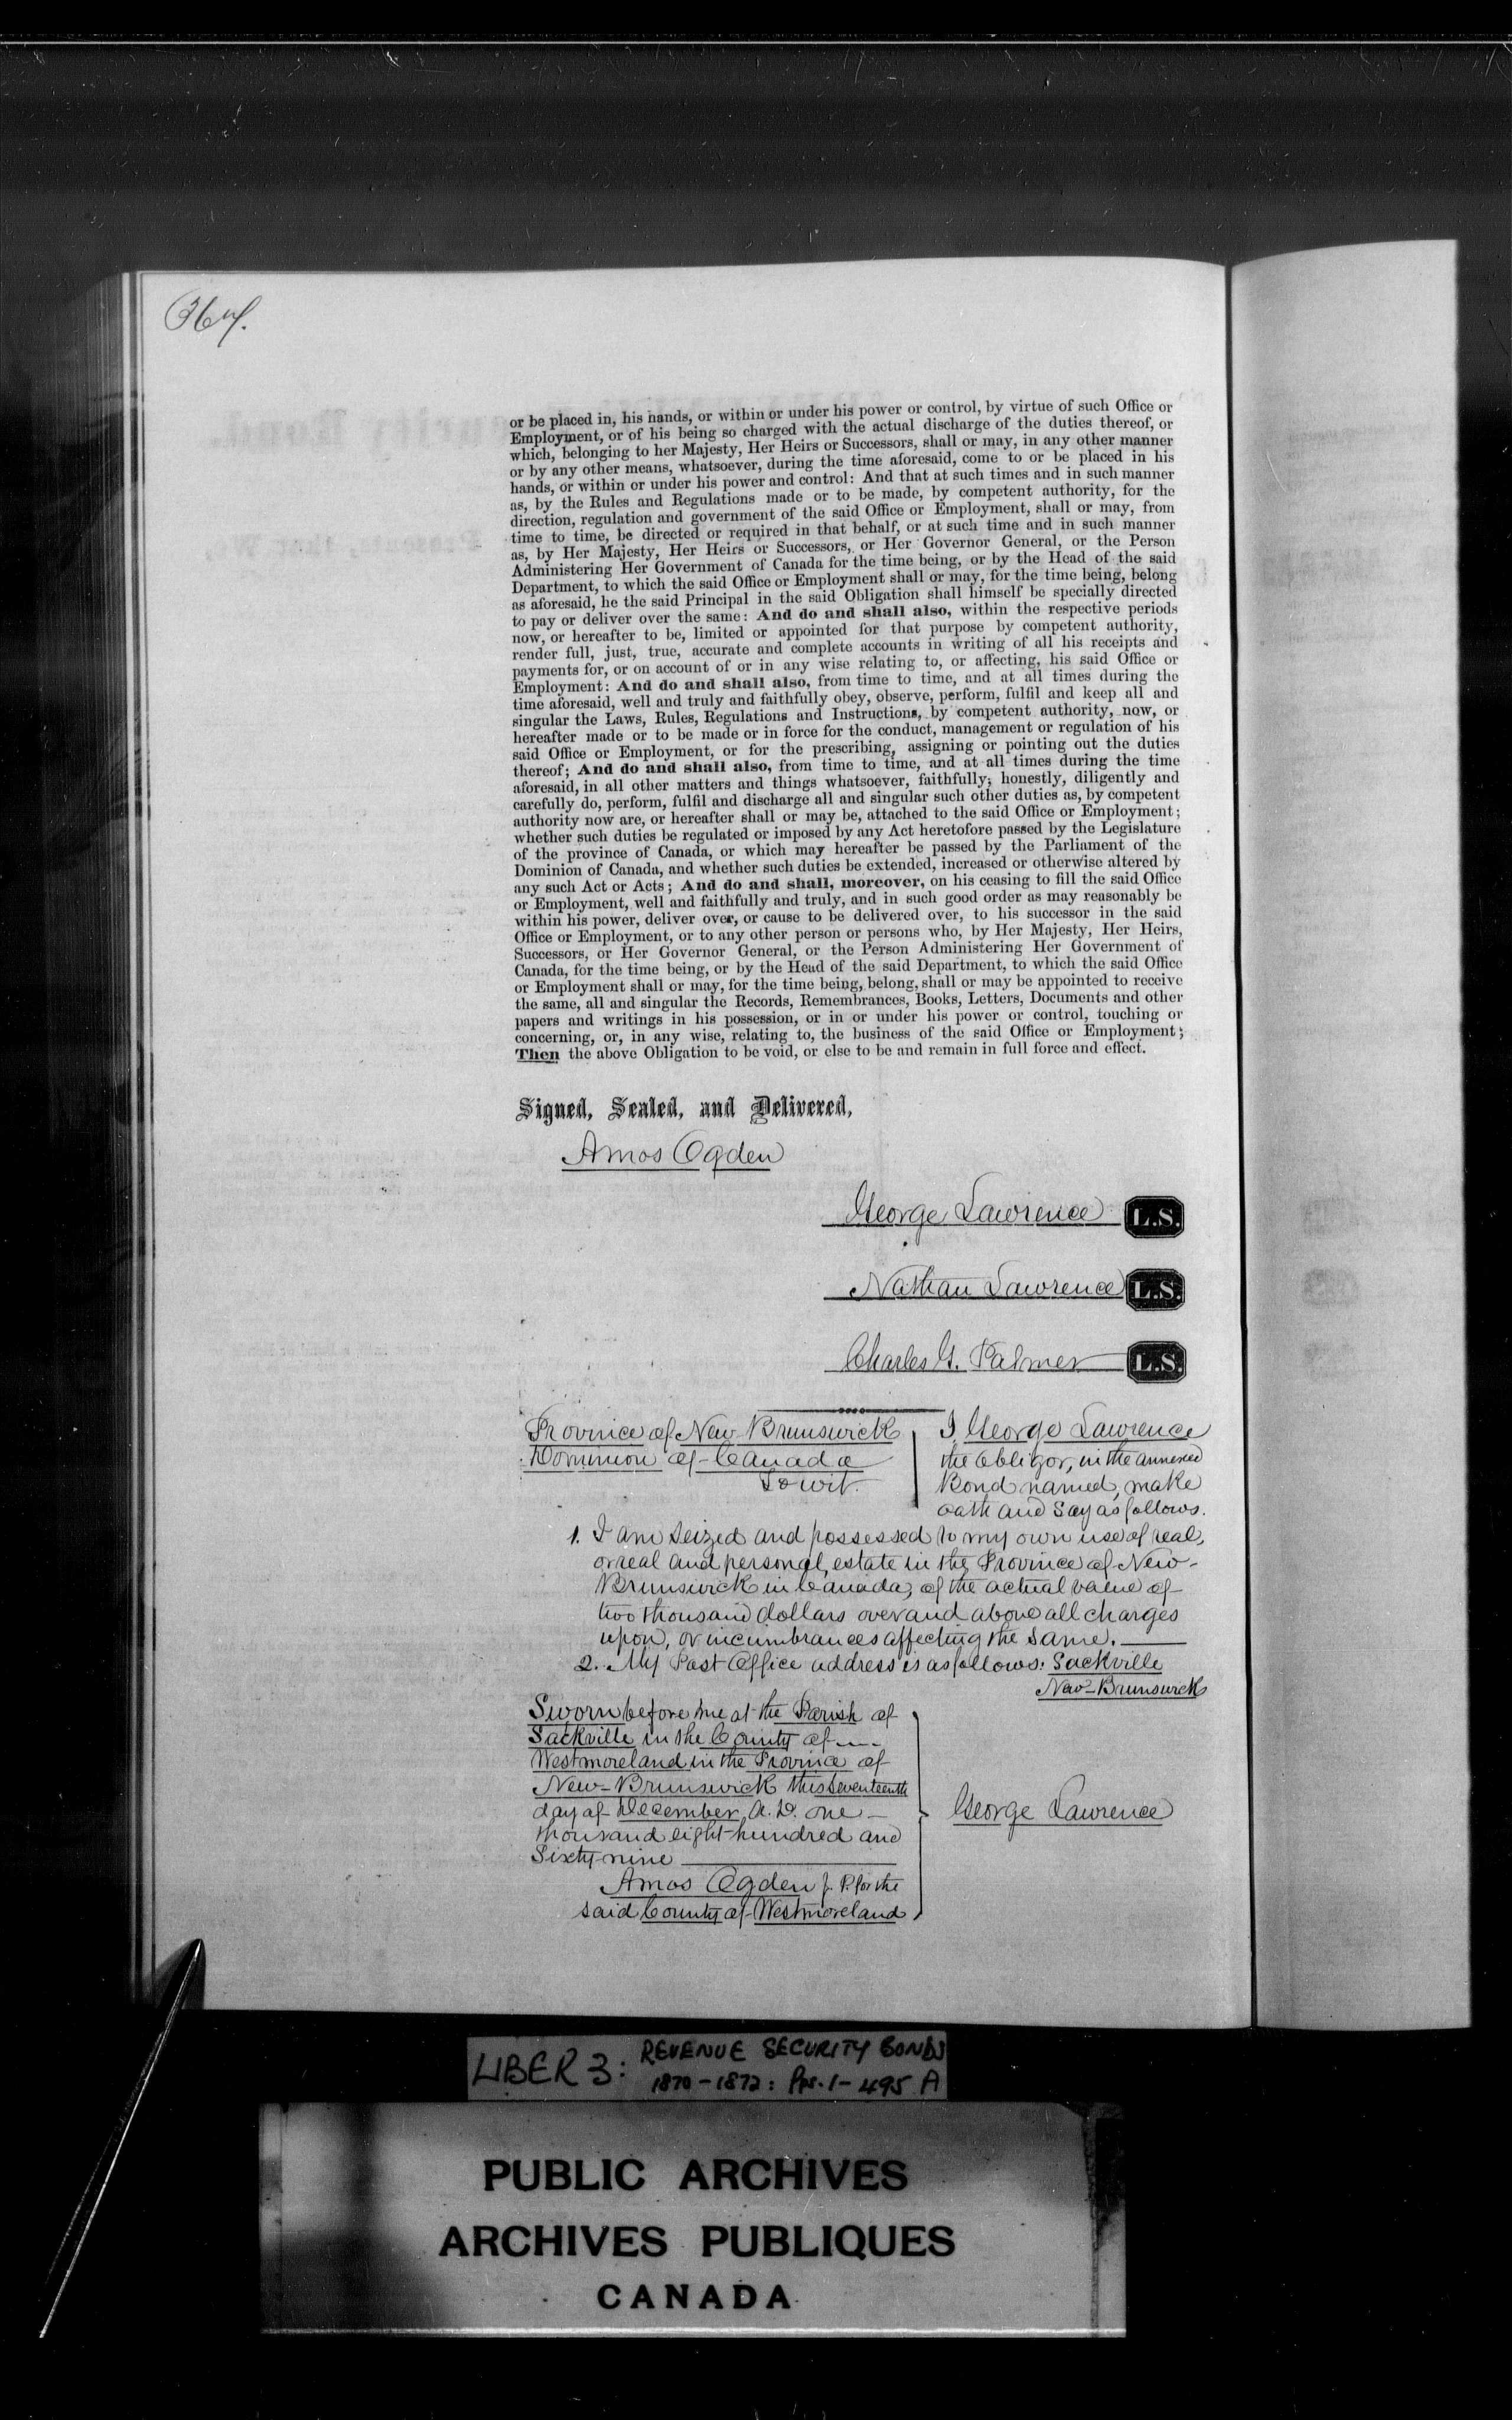 364.
or be placed in, his hands, or within or under his power or control, by virtue of such Office or
Employment, or of his being so charged with the actual discharge of the duties thereof, or
which, belonging to her Majesty, Her Heirs or Successors, shall or may, in any other manner
or by any other means, whatsoever, during the time aforesaid, come to or be placed in his
hands, or within or under his power and control: And that at such times and in such manner
as, by the Rules and Regulations made or to be made, by competent authority, for the
direction, regulation and government of the said Office or Employment, shall or may, from
time to time, be directed or required in that behalf, or at such time and in such manner
as, by Her Majesty, Her Heirs or Successors, or Her Governor General, or the Person
Administering Her Government of Canada for the time being, or by the Head of the said
Department, to which the said Office or Employment shall or may, for the time being, belong
as aforesaid, he the said Principal in the said Obligation shall himself be specially directed
to pay or deliver over the same: And do and shall also, within the respective periods
now, or hereafter to be, limited or appointed for that purpose by competent authority,
render full, just, true, accurate and complete accounts in writing of all his receipts and
payments for, or on account of or in any wise relating to, or affecting, his said Office or
Employment: And do and shall also, from time to time, and at all times during the
time aforesaid, well and truly and faithfully obey, observe, perform, fulfil and keep all and
singular the Laws, Rules, Regulations and Instructions, by competent authority, now, or
hereafter made or to be made or in force for the conduct, management or regulation of his
said Office or Employment, or for the prescribing, assigning or pointing out the duties
thereof; And do and shall also, from time to time, and at all times during the time
aforesaid, in all other matters and things whatsoever, faithfully, honestly, diligently and
carefully do, perform, fulfil and discharge all and singular such other duties as, by competent
authority now are, or hereafter shall or may be, attached to the said Office or Employment;
whether such duties be regulated or imposed by any Act heretofore passed by the Legislature
of the province of Canada, or which may hereafter be passed by the Parliament of the
Dominion of Canada, and whether such duties be extended, increased or otherwise altered by
any such Act or Acts; And do and shall, moreover, on his ceasing to fill the said Office
or Employment, well and faithfully and truly, and in such good order as may reasonably be
within his power, deliver over, or cause to be delivered over, to his successor in the said
Office or Employment, or to any other person or persons who, by Her Majesty, Her Heirs,
Successors, or Her Governor General, or the Person Administering Her Government of
Canada, for the time being, or by the Head of the said Department, to which the said Office
or Employment shall or may, for the time being, belong, shall or may be appointed to receive
the same, all and singular the Records, Remembrances, Books, Letters, Documents and other
papers and writings in his possession, or in or under his power or control, touching or
concerning, or, in any wise, relating to, the business of the said Office or Employment;
Then the above Obligation to be void, or else to be and remain in full force and effect.
Signed, Sealed, and Delivered,
Amos Ogden
George Lawrence L.S.
Nathan Lawrence L.S.
Charles G. Palmer L.S.
Province of New-Brunswick
Dominion of Canada
To wit.
I George Lawrence
the Obligor, in the annexed
Bond named, make
oath and Say as follows.
1. I am Seized and possessed to my own use of real,
or real and personal, estate in the Province of New-
Brunswick in Canada, of the actual value of
two thousand dollars over and above all charges
upon, or incumbrances affecting the Same.
2. My Post Office address is as follows: Sackville
New-Brunswick
Sworn before me at the Parish of
Sackville in the County of
Westmoreland in the Province of
New-Brunswick this Seventeenth
day of December, A.D. one
thousand eight hundred and
Sixty-nine
Amos Ogden J. P. for the
said County of Westmoreland
George Lawrence
LIBER 3: REVENUE SECURITY BONDS
1870-1872: Pps. 1-495 A
PUBLIC ARCHIVES
ARCHIVES PUBLIQUES
CANADA